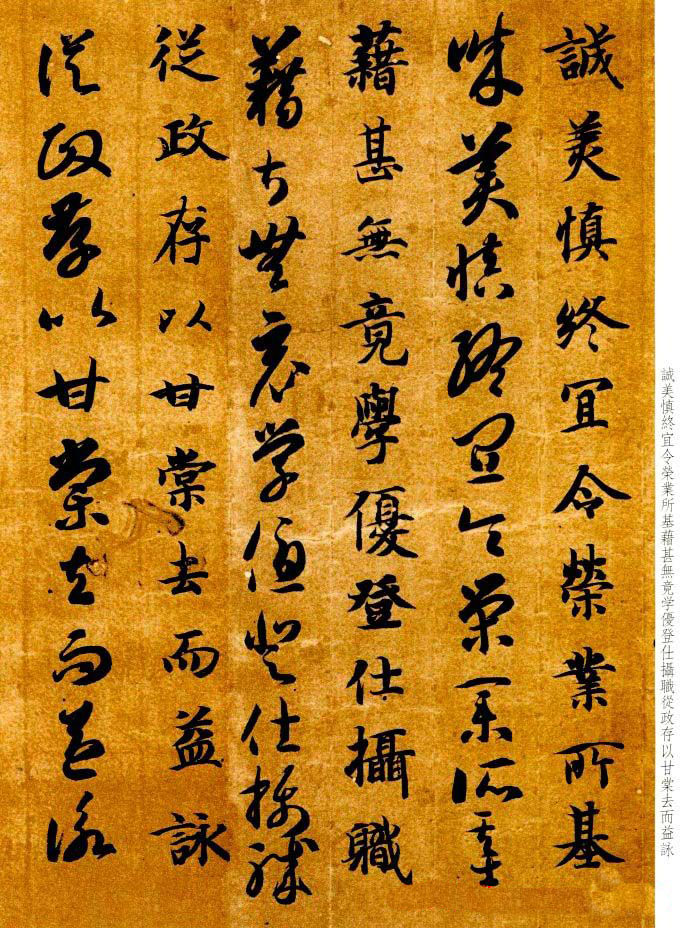 誠美慎終宜令榮業所基藉甚無竟学優登仕攝職從政存以甘棠去而益詠
誠美慎終宜令榮業所基
誠美慎終宜令榮業所基
藉甚無竟學優登仕攝職
藉甚無竟學優登仕攝職
從政存以甘棠去而益詠
從政存以甘棠去而益詠